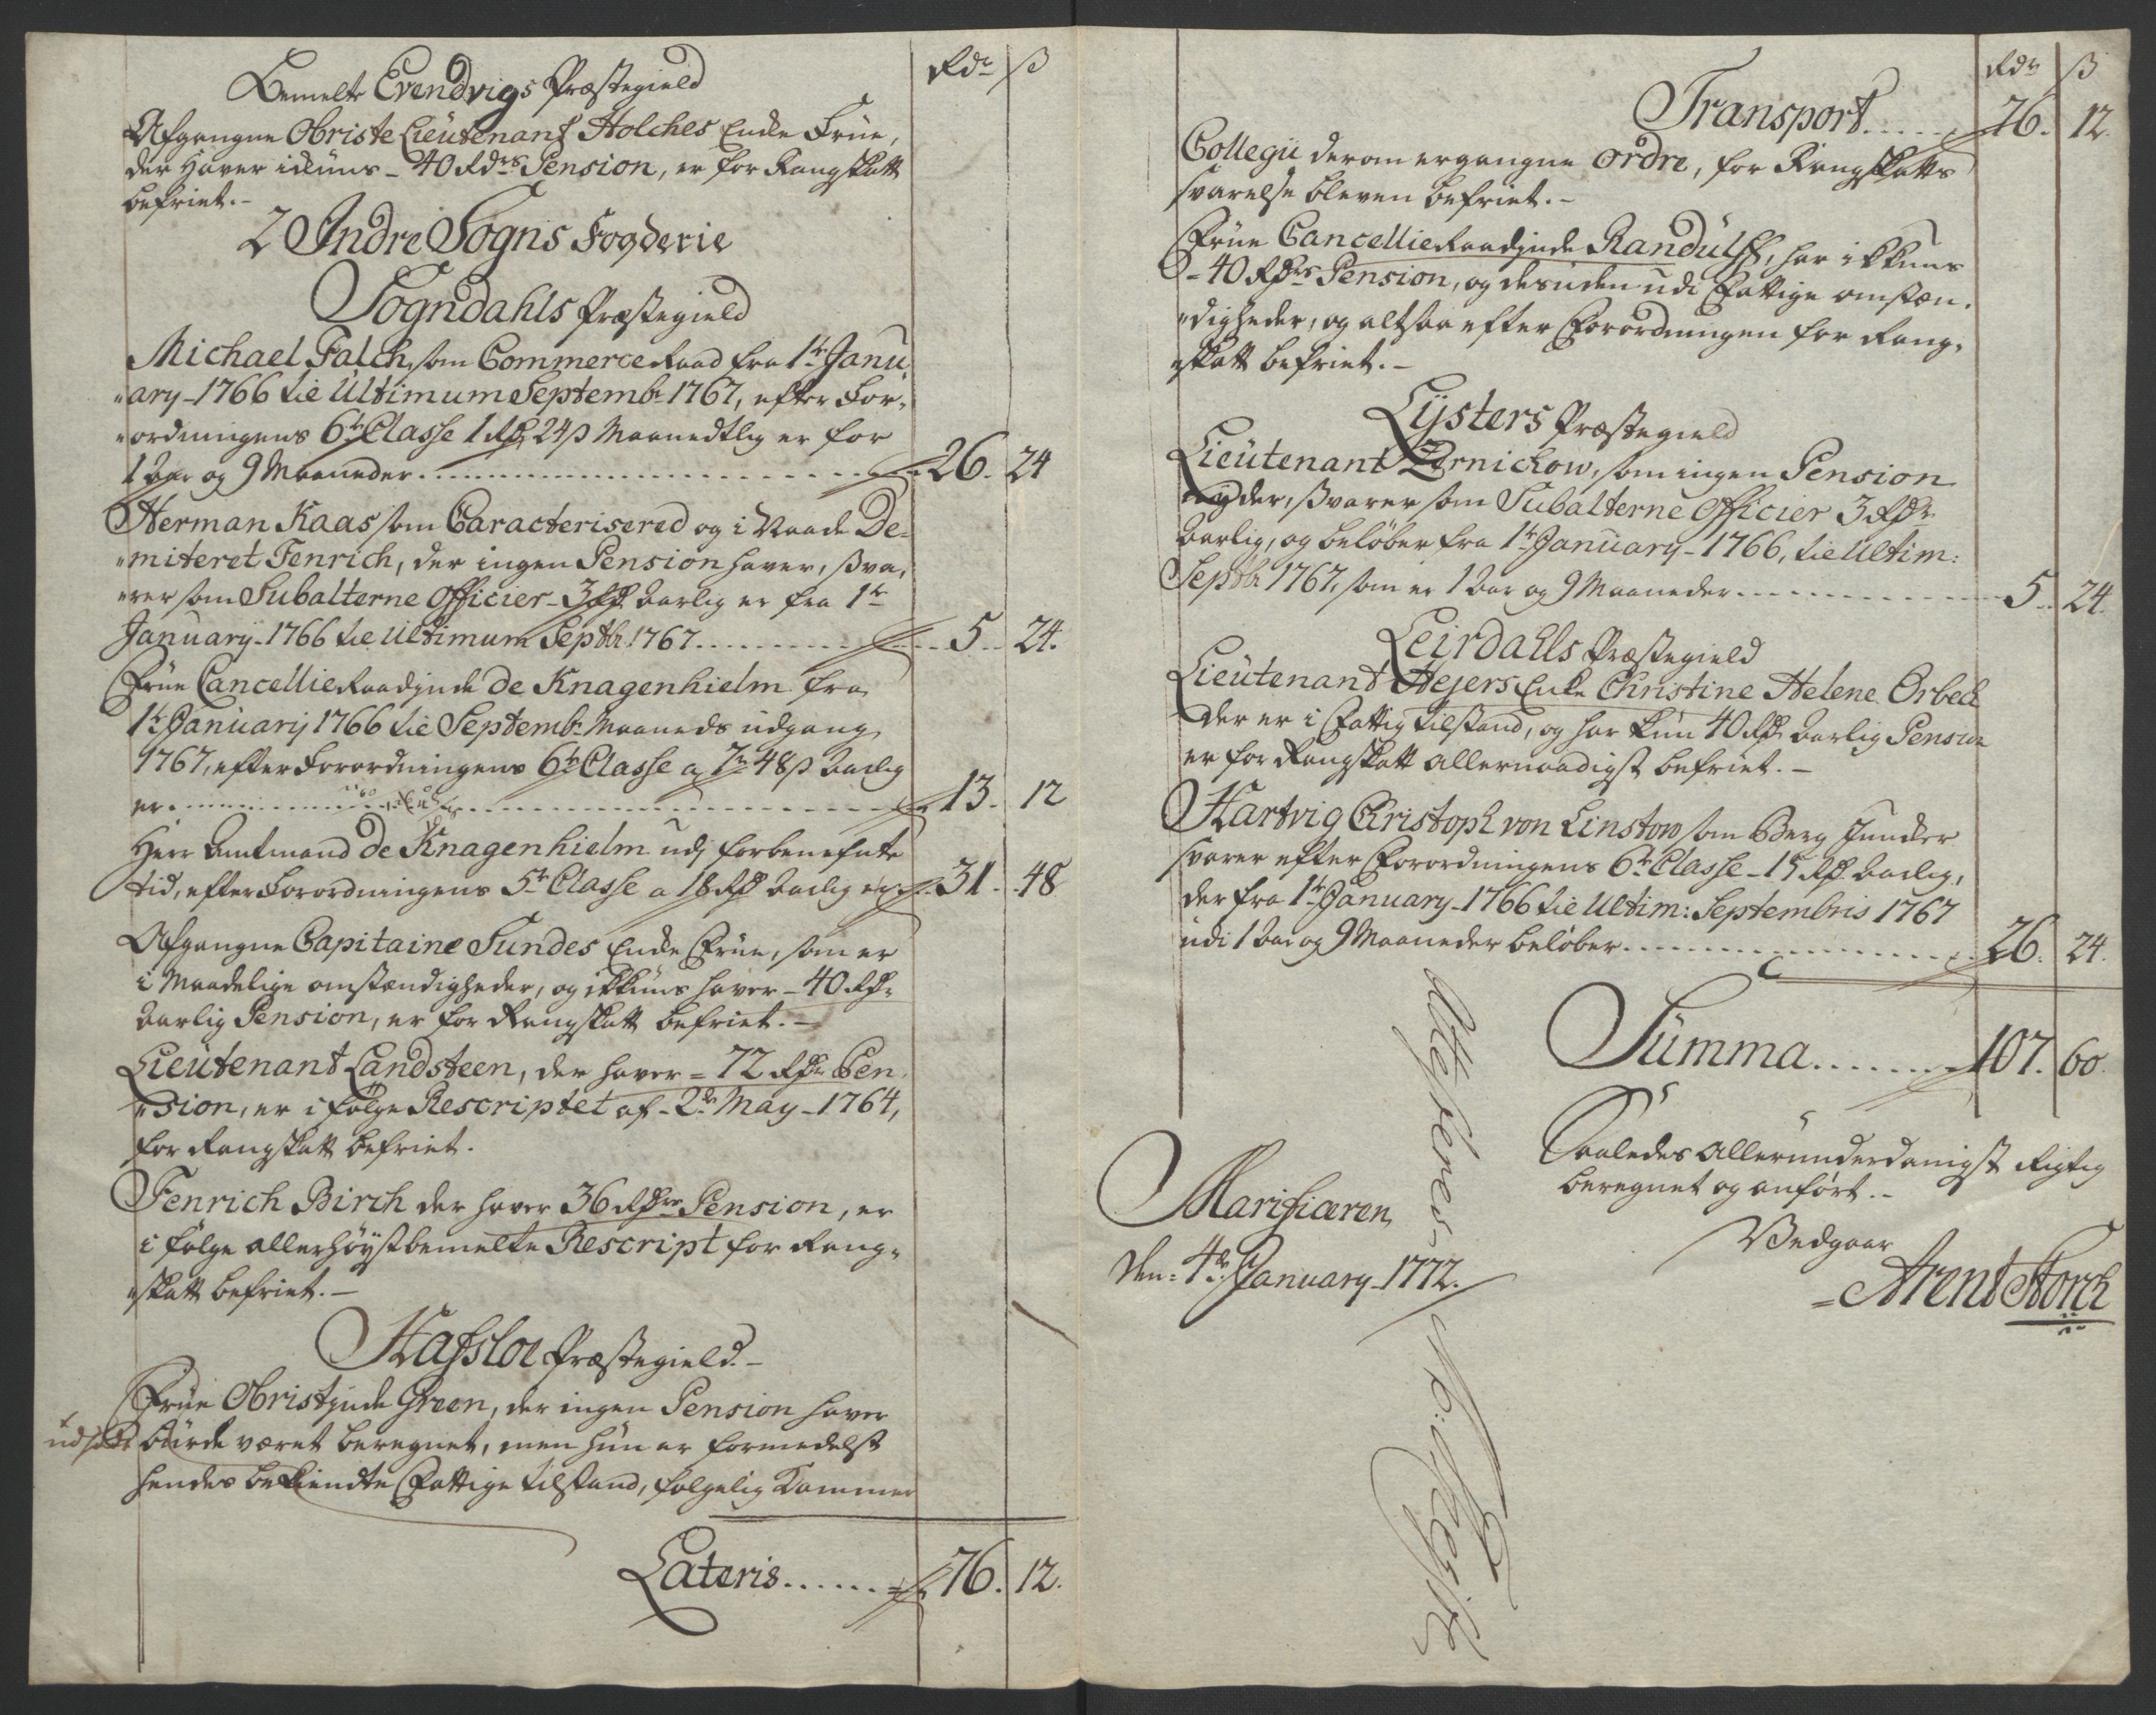 Rdr ß
Bemelte Evendvigs Præstegield
Afgangne Obriste Lieutenant Holches Encke Frue,
der haver ickuns - 40 Rdrs Pension, er for Rangskatt
befriet.-
2 Indre Sogns Fogderie
Sogndahls Præstegield
Michael Falch, som Commerce Raad fra 1te Janu,
"ary - 1766 til Ultimum Septembr 1767, efter For,
"ordningens 6te Classe 1 Rdr 24 ß Maanedtlig er for
1 Aar og 9 Maaneder ........ 26. 24
Herman Kaas som Caracteriseret og i Naade De-
"miteret Fenrich, der ingen Pension haver, sva,
"rer som Subalterne Officier - 3 Rdr Aarlig er fra 1te
January - 1766 til Ultimum Septbr 1767 ........ 5. 24.
Frue Cancellie Raadinde De Knagenhielm fra
1te January 1766 til Septembr Maaneds udgang
1767, efter Forordningens 6te Classe a 7 Rdr 48 ß Aarlig
er ........ 13. 12
Herr Amtmand De Knagenhielm udj forbenefnte
tid, efter Forordningens 5te Classe a 18 Rdr Aarlig er 31. 48
Afgangne Capitaine Sundes Encke Frue, som er
i Maadelige omstændigheder, og ickuns haver - 40 Rdr
Aarlig Pension, er for Rangskatt befriet.-
Lieutenant Landsteen, der haver - 72 Rdr Pen,
"sion, er i følge Rescriptet af - 2de May - 1764,
for Rangskatt befriet.
Fenrich Birch der haver 36 Rdrs Pension, er
i følge allerhøystbemelte Rescript for Rang,
"skatt befriet.-
Hafsloe Præstegield.-
Frue Obristinde Green, der ingen Pension haver
udsatt burde været beregnet, men hun er formedelst
hendes bekiendte Fattige tilstand, følgelig Kammer
Lateris ...... 76. 12.
Rdr ß
Transport ..... 76. 12.
Collegii derom ergangne Ordre, for Rangskatts
svarelse bleven befriet.-
Frue Cancellie Raadinde Randulff, har ickuns
- 40 Rdrs Pension, og desuden udi Fattige omstæn,
"digheder, og altsaa efter Forordningen for Rang,
"skatt befriet.-
Lysters Præstegield
Lieutenant Zernichow, som ingen Pension
nyder, svarer som Subalterne Officier 3 Rdr
Aarlig, og beløber fra 1te January - 1766, til Ultim:
Septbr 1767, som er 1 Aar og 9 Maaneder ........ 5. 24.
Leirdahls Præstegield
Lieutenant Hejers Encke Christine Helene Orbeck
der er i Fattig tilstand, og har kun 40 Rdr Aarlig Pension
er for Rangskatt allernaadigst befriet.-
Hartvig Christoph von Linstow som Berg Juncker
svarer efter Forordningens 6te Classe - 15 Rdr Aarlig,
der fra 1te January - 1766 til Ultim: Septembris 1767
udi 1 Aar og 9 Maaneder beløber ........ 26. 24.
Summa ....... 107. 60.
Saaledes allerunderdanigst Rigtig
beregnet og anført.-
Vedgaar
Arent Storch
Marifiæren
den: 4de January - 1772.
Attesteres